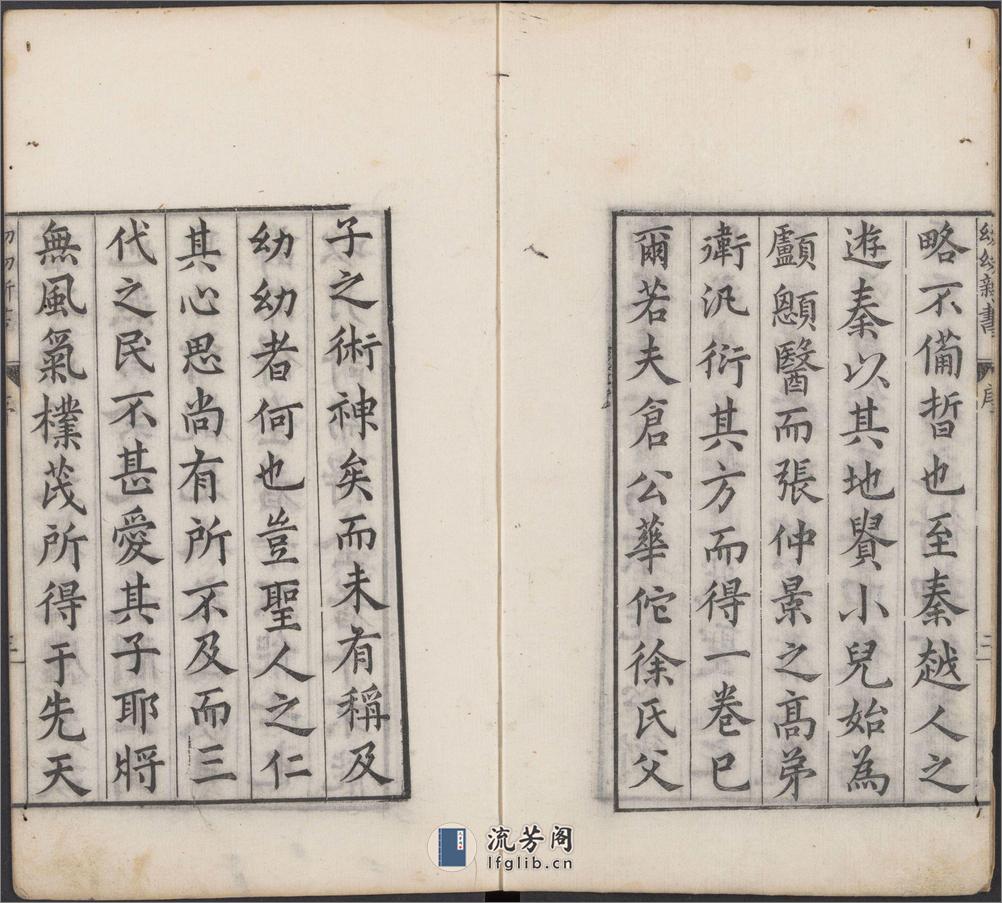 幼幼新書
序
二
略不備晳也至秦越人之
逰秦以其地貴小兒始為
顱顖醫而張仲景之髙弟
衛汎衍其方而得一卷已
爾若夫倉公華佗徐氏父
子之術神矣而未有稱及
幼幼者何也豈聖人之仁
其心思尚有所不及而三
代之民不甚愛其子耶將
無風氣樸茂所得于先天
流芳阁
lfglib.cn